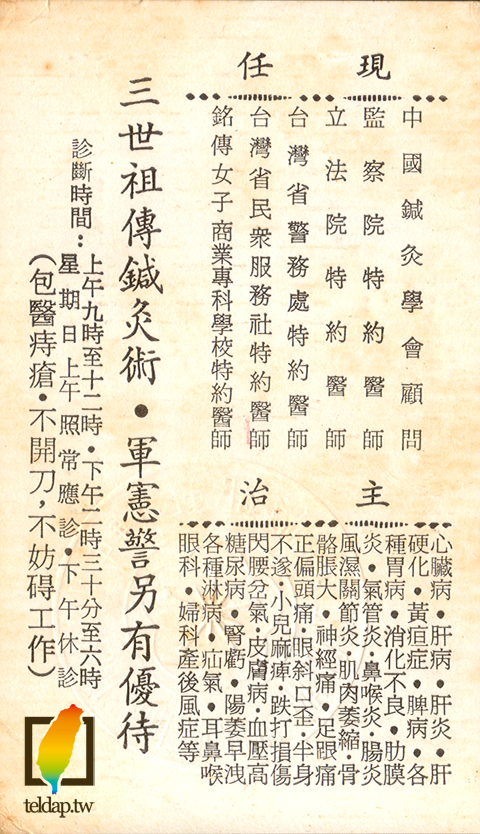 現任
中國鍼灸學會顧問
監察院特約醫師
立法院特約醫師
台灣省警務處特約醫師
台灣省民衆服務社特約醫師
銘傳女子商業專科學校特約醫師
主治
心臟病•肝病•肝炎•肝
硬化•黃疸症•脾病•各
種胃病•消化不良•肋膜
炎•氣管炎•鼻喉炎•腸炎
風濕關節炎•肌肉萎縮•骨
骼脹大•神經痛•足跟痛
正偏頭痛•眼斜口歪•半身
不遂•小兒麻痺•跌打損傷
閃腰岔氣•皮膚病•血壓高
糖尿病•腎虧•陽萎早洩
各種淋病•疝氣•耳鼻喉
眼科•婦科產後風症等
三世祖傳鍼灸術•軍憲警另有優待
診斷時間：上午九時至十二時•下午二時三十分至六時
星期日上午照常應診•下午休診
（包醫痔瘡•不開刀，不妨碍工作）
teldap.tw